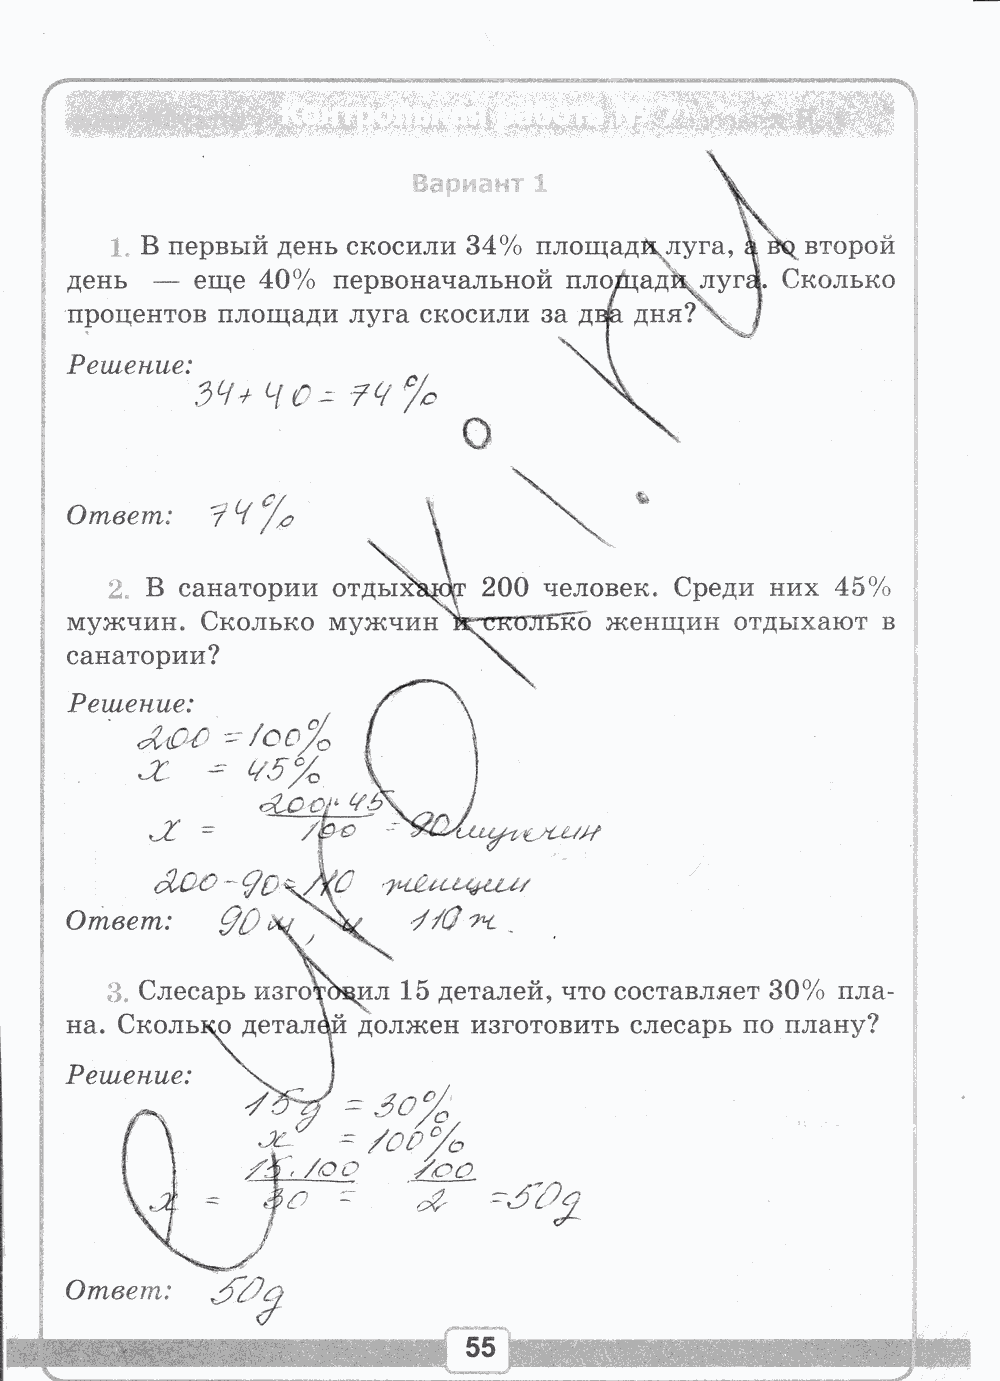 Контрольная работа № 7
Вариант 1
1. В первый день скосили 34% площади луга, а во второй
день — еще 40% первоначальной площади луга. Сколько
процентов площади луга скосили за два дня?
Решение:
34+40=74%
Ответ: 74%
2. В санатории отдыхают 200 человек. Среди них 45%
мужчин. Сколько мужчин и сколько женщин отдыхают в
санатории?
Решение:
200 = 100%
x = 45%
x = 200·45/100 = 90 мужчин
200-90=110 женщин
Ответ: 90 м, и 110 ж.
3. Слесарь изготовил 15 деталей, что составляет 30% пла-
на. Сколько деталей должен изготовить слесарь по плану?
Решение:
15д = 30%
x = 100%
x = 15·100/30 = 100/2 = 50д
Ответ: 50д
55